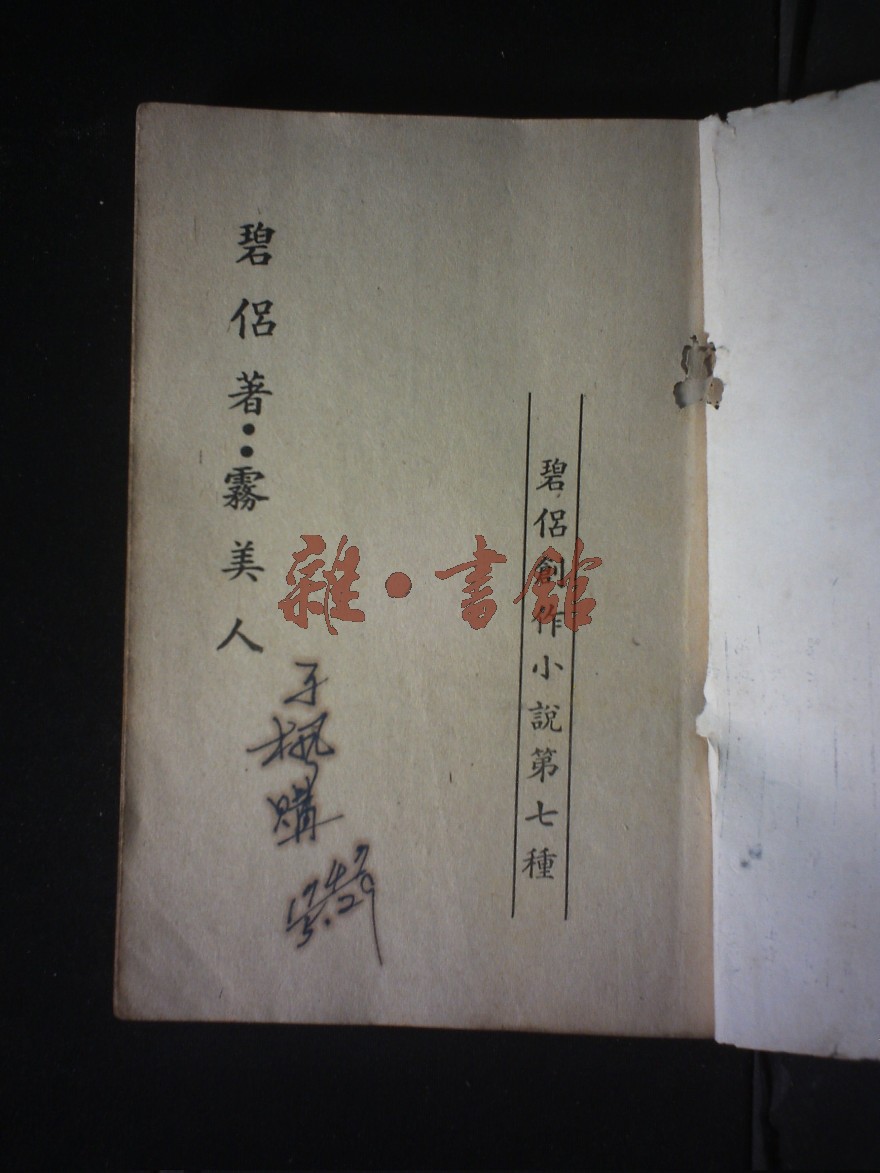 碧侶創作小說第七種
碧侶著：霧美人
于楓購
雜·書館